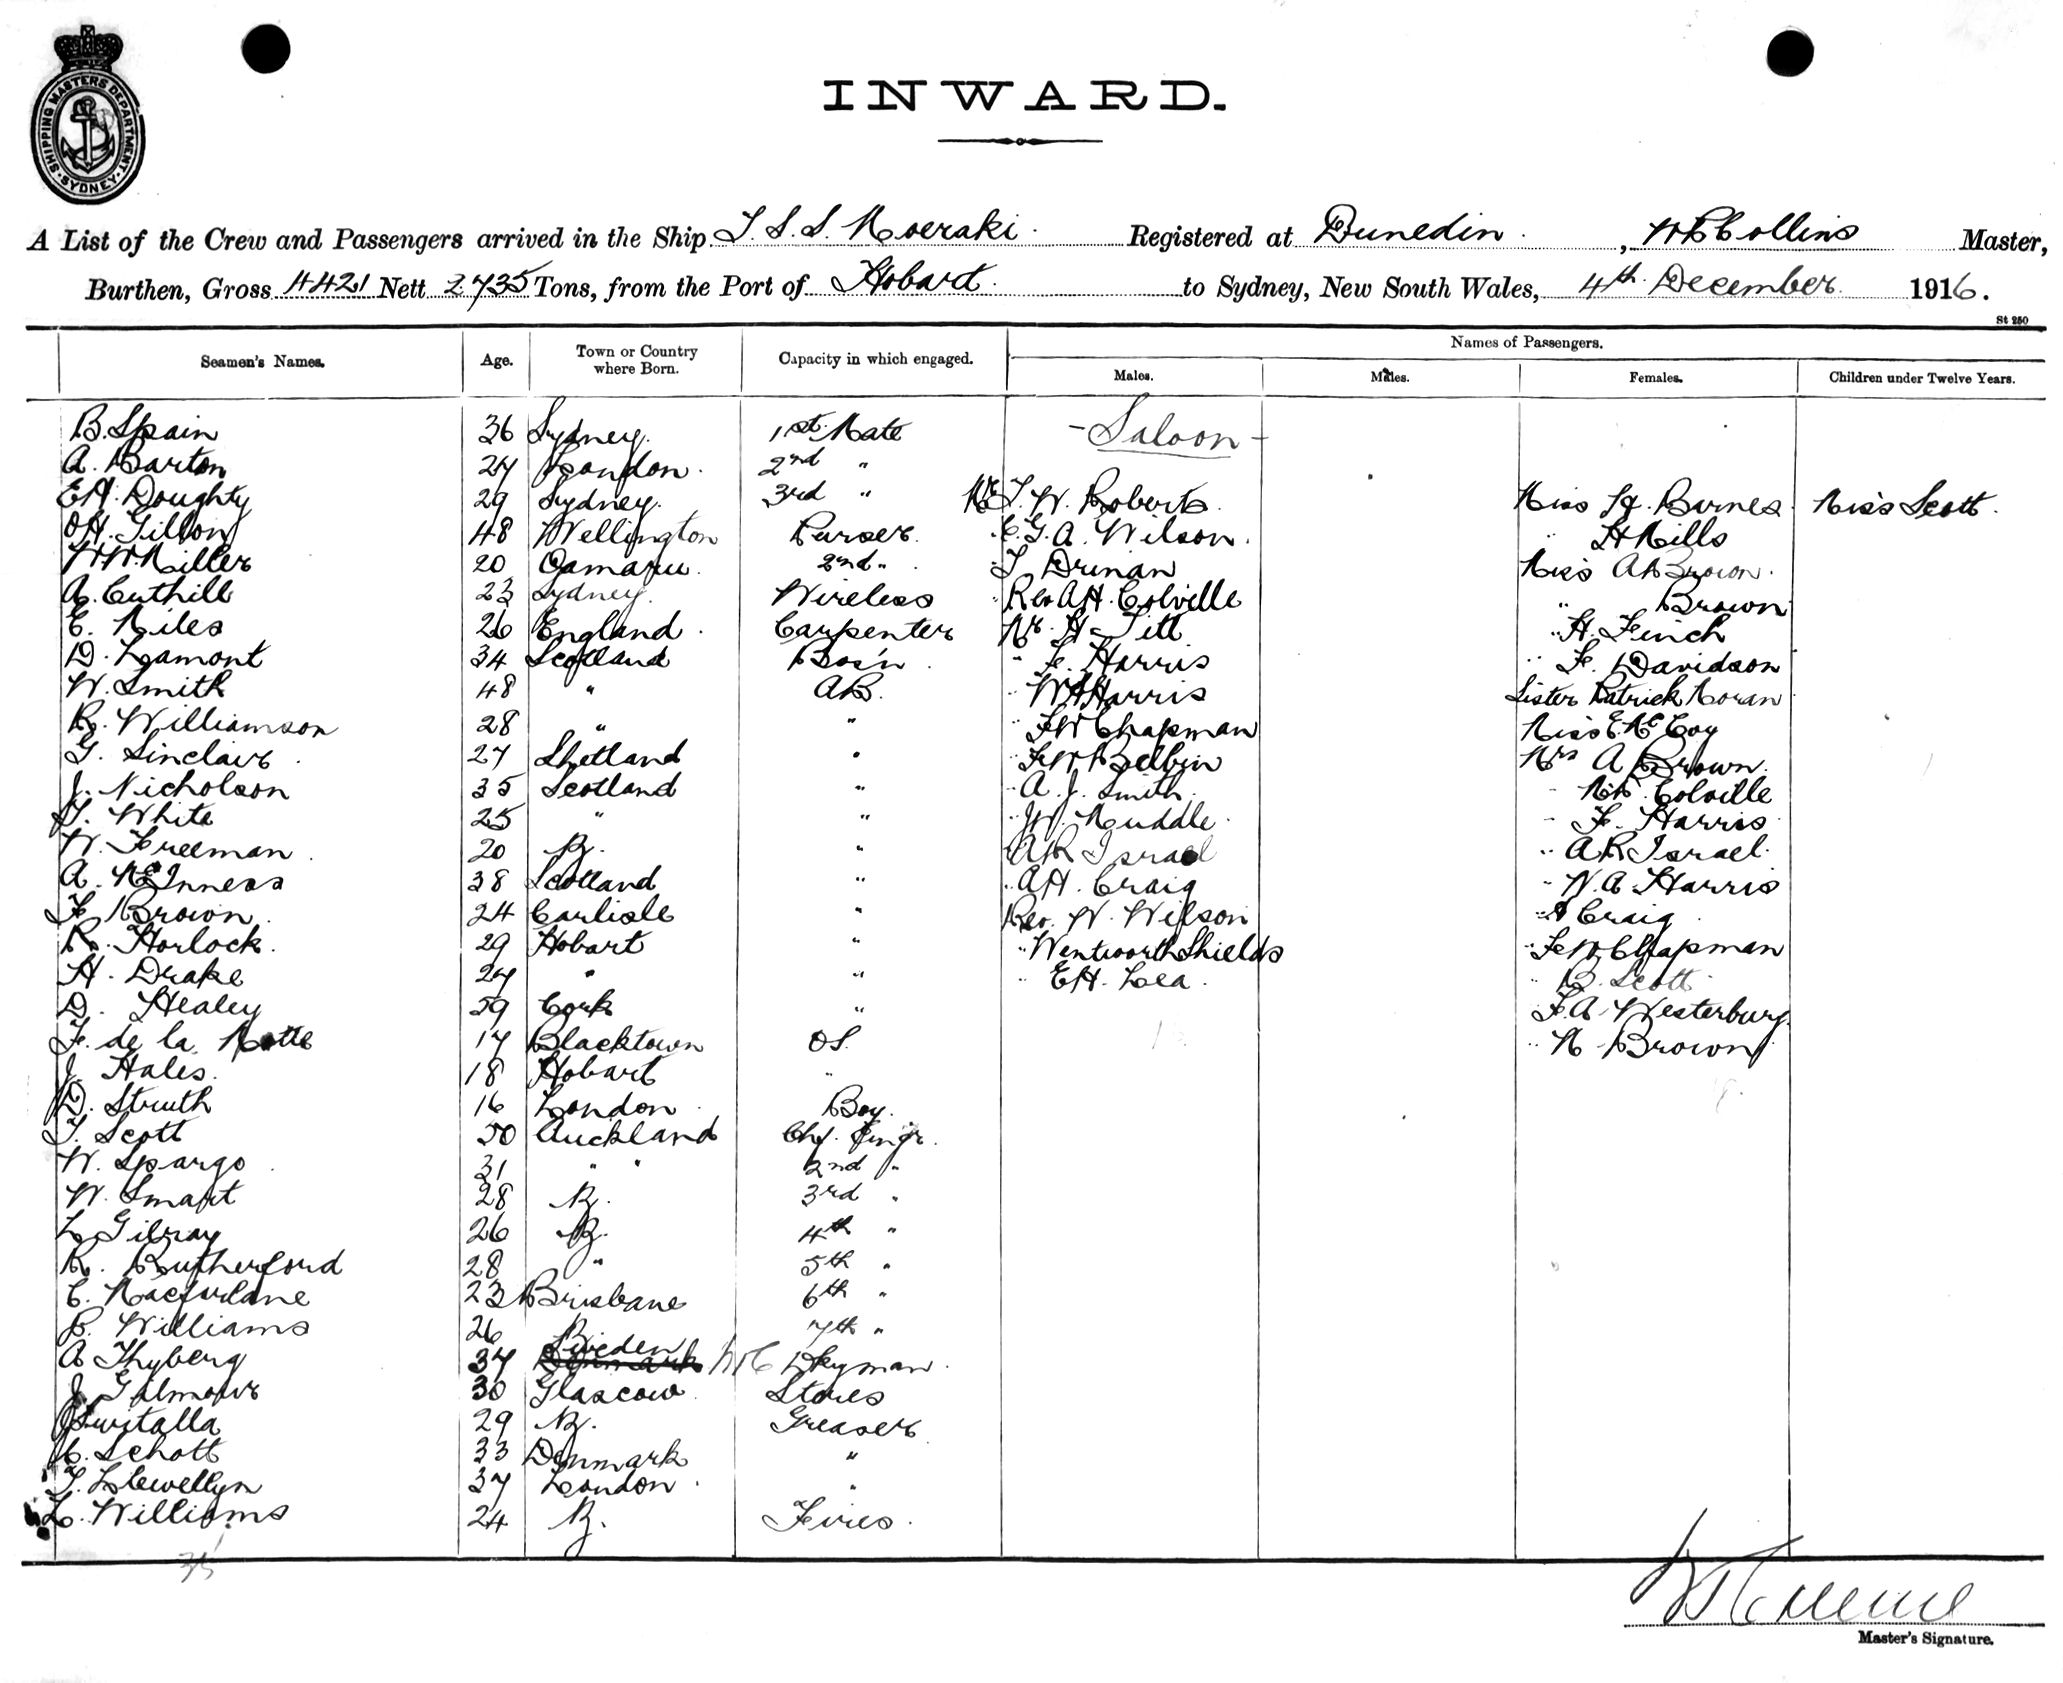 SHIPPING MASTERS DEPARTMENT · SYDNEY ·
INWARD.
A List of the Crew and Passengers arrived in the Ship T.S.S. Moeraki Registered at Dunedin, W P Collins Master,
Burthen, Gross 4421 Nett 2735 Tons, from the Port of Hobart to Sydney, New South Wales, 4th December 1916.
St 250
Seamen's Names. Age. Town or Country where Born. Capacity in which engaged. Names of Passengers.
Males. Males. Females. Children under Twelve Years.
B. Spain 36 Sydney. 1st Mate - Saloon -
A. Barton 27 London. 2nd "
EH. Doughty 29 Sydney. 3rd " Mr T. W. Roberts. Miss H. Burnes Miss Scott.
OH. Gillon 48 Wellington Purser. " C. G. A. Wilson. " H Mills
WW. Miller 20 Oamaru. 2nd " " T Drinan Miss A Brown.
A. Cuthill 23 Sydney. Wireless " Rev AH. Colville " Brown
E. Miles 26 England. Carpenter Mr. H Titt " H. Finch
D. Lamont 34 Scotland Bos'n " F. Harris " F. Davidson
W. Smith 48 " AB. " WH Harris Sister Patrick Moran
R. Williamson 28 " " " FW Chapman Miss E. McCoy
G. Sinclair 27 Shetland " " FW Belbin Mrs A Brown.
J. Nicholson 35 Scotland " " A. J. Smith. " Colville
T. White 25 " " " JW. Muddle. " F. Harris
W. Freeman 20 NZ. " AR Israel " AR Israel.
A. McInness 38 Scotland " " AH. Craig " W. A. Harris
F. Brown 24 Carlisle " Rev. W. Wilson " A Craig
R. Horlock. 29 Hobart " " Wentworth Shields " FW Chapman
H. Drake 27 " " " EH. Lea. " B. Scott
D. Healey 59 Cork " " F. A. Westerbury.
F. de la Motte 17 Blacktown OS. " M Brown
J. Hales. 18 Hobart "
D. Struth 16 London Boy.
T. Scott 50 Auckland Chf. Engr.
W. Spargo 31 " " 2nd "
W. Smart 28 NZ. 3rd "
L Gilray 26 NZ. 4th "
R. Rutherford 28 " 5th "
C. Macfarlane 23 Brisbane 6th "
R. Williams 26 7th "
A Thyberg 37 Sweden Denmark Dkyman.
J. Gilmour 30 Glascow Stores
J Switalla 29 NZ. Greaser
C. Schott 33 Denmark "
T. Llewellyn 37 London "
L. Williams 24 NZ. Fires.
35
Master's Signature.